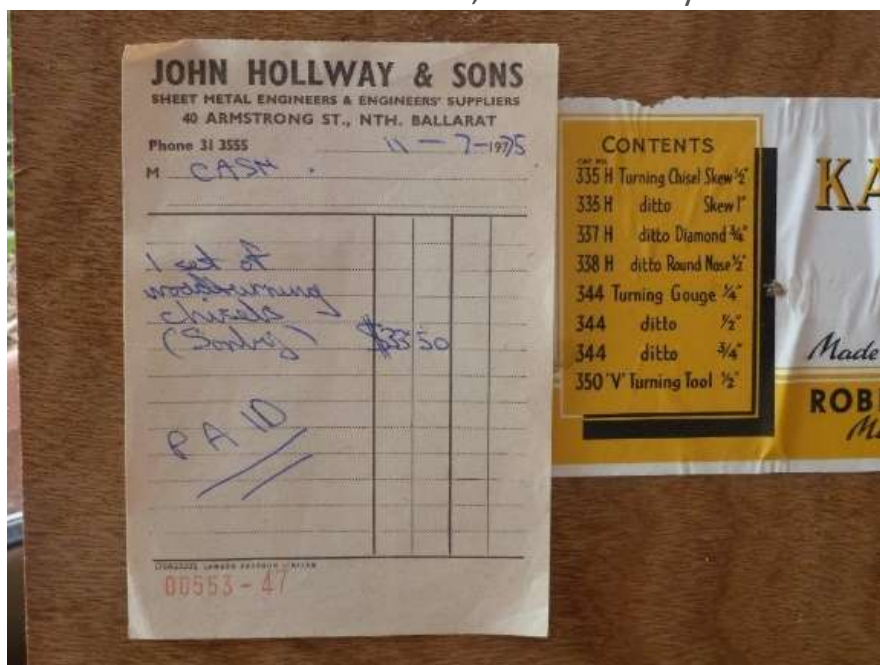 JOHN HOLLWAY & SONS
SHEET METAL ENGINEERS & ENGINEERS' SUPPLIERS
40 ARMSTRONG ST., NTH. BALLARAT
Phone 31 3555
11-7-1975
M CASH.
1 set of
woodturning
chisels
(Sorby) $33 50
PAID
00553-47
CONTENTS
CAT. NO.
335 H Turning Chisel Skew ½"
335 H ditto Skew 1"
337 H ditto Diamond ¾"
338 H ditto Round Nose ½"
344 Turning Gouge ¼"
344 ditto ½"
344 ditto ¾"
350 'V' Turning Tool ½"
KA
Made
ROB
Ma